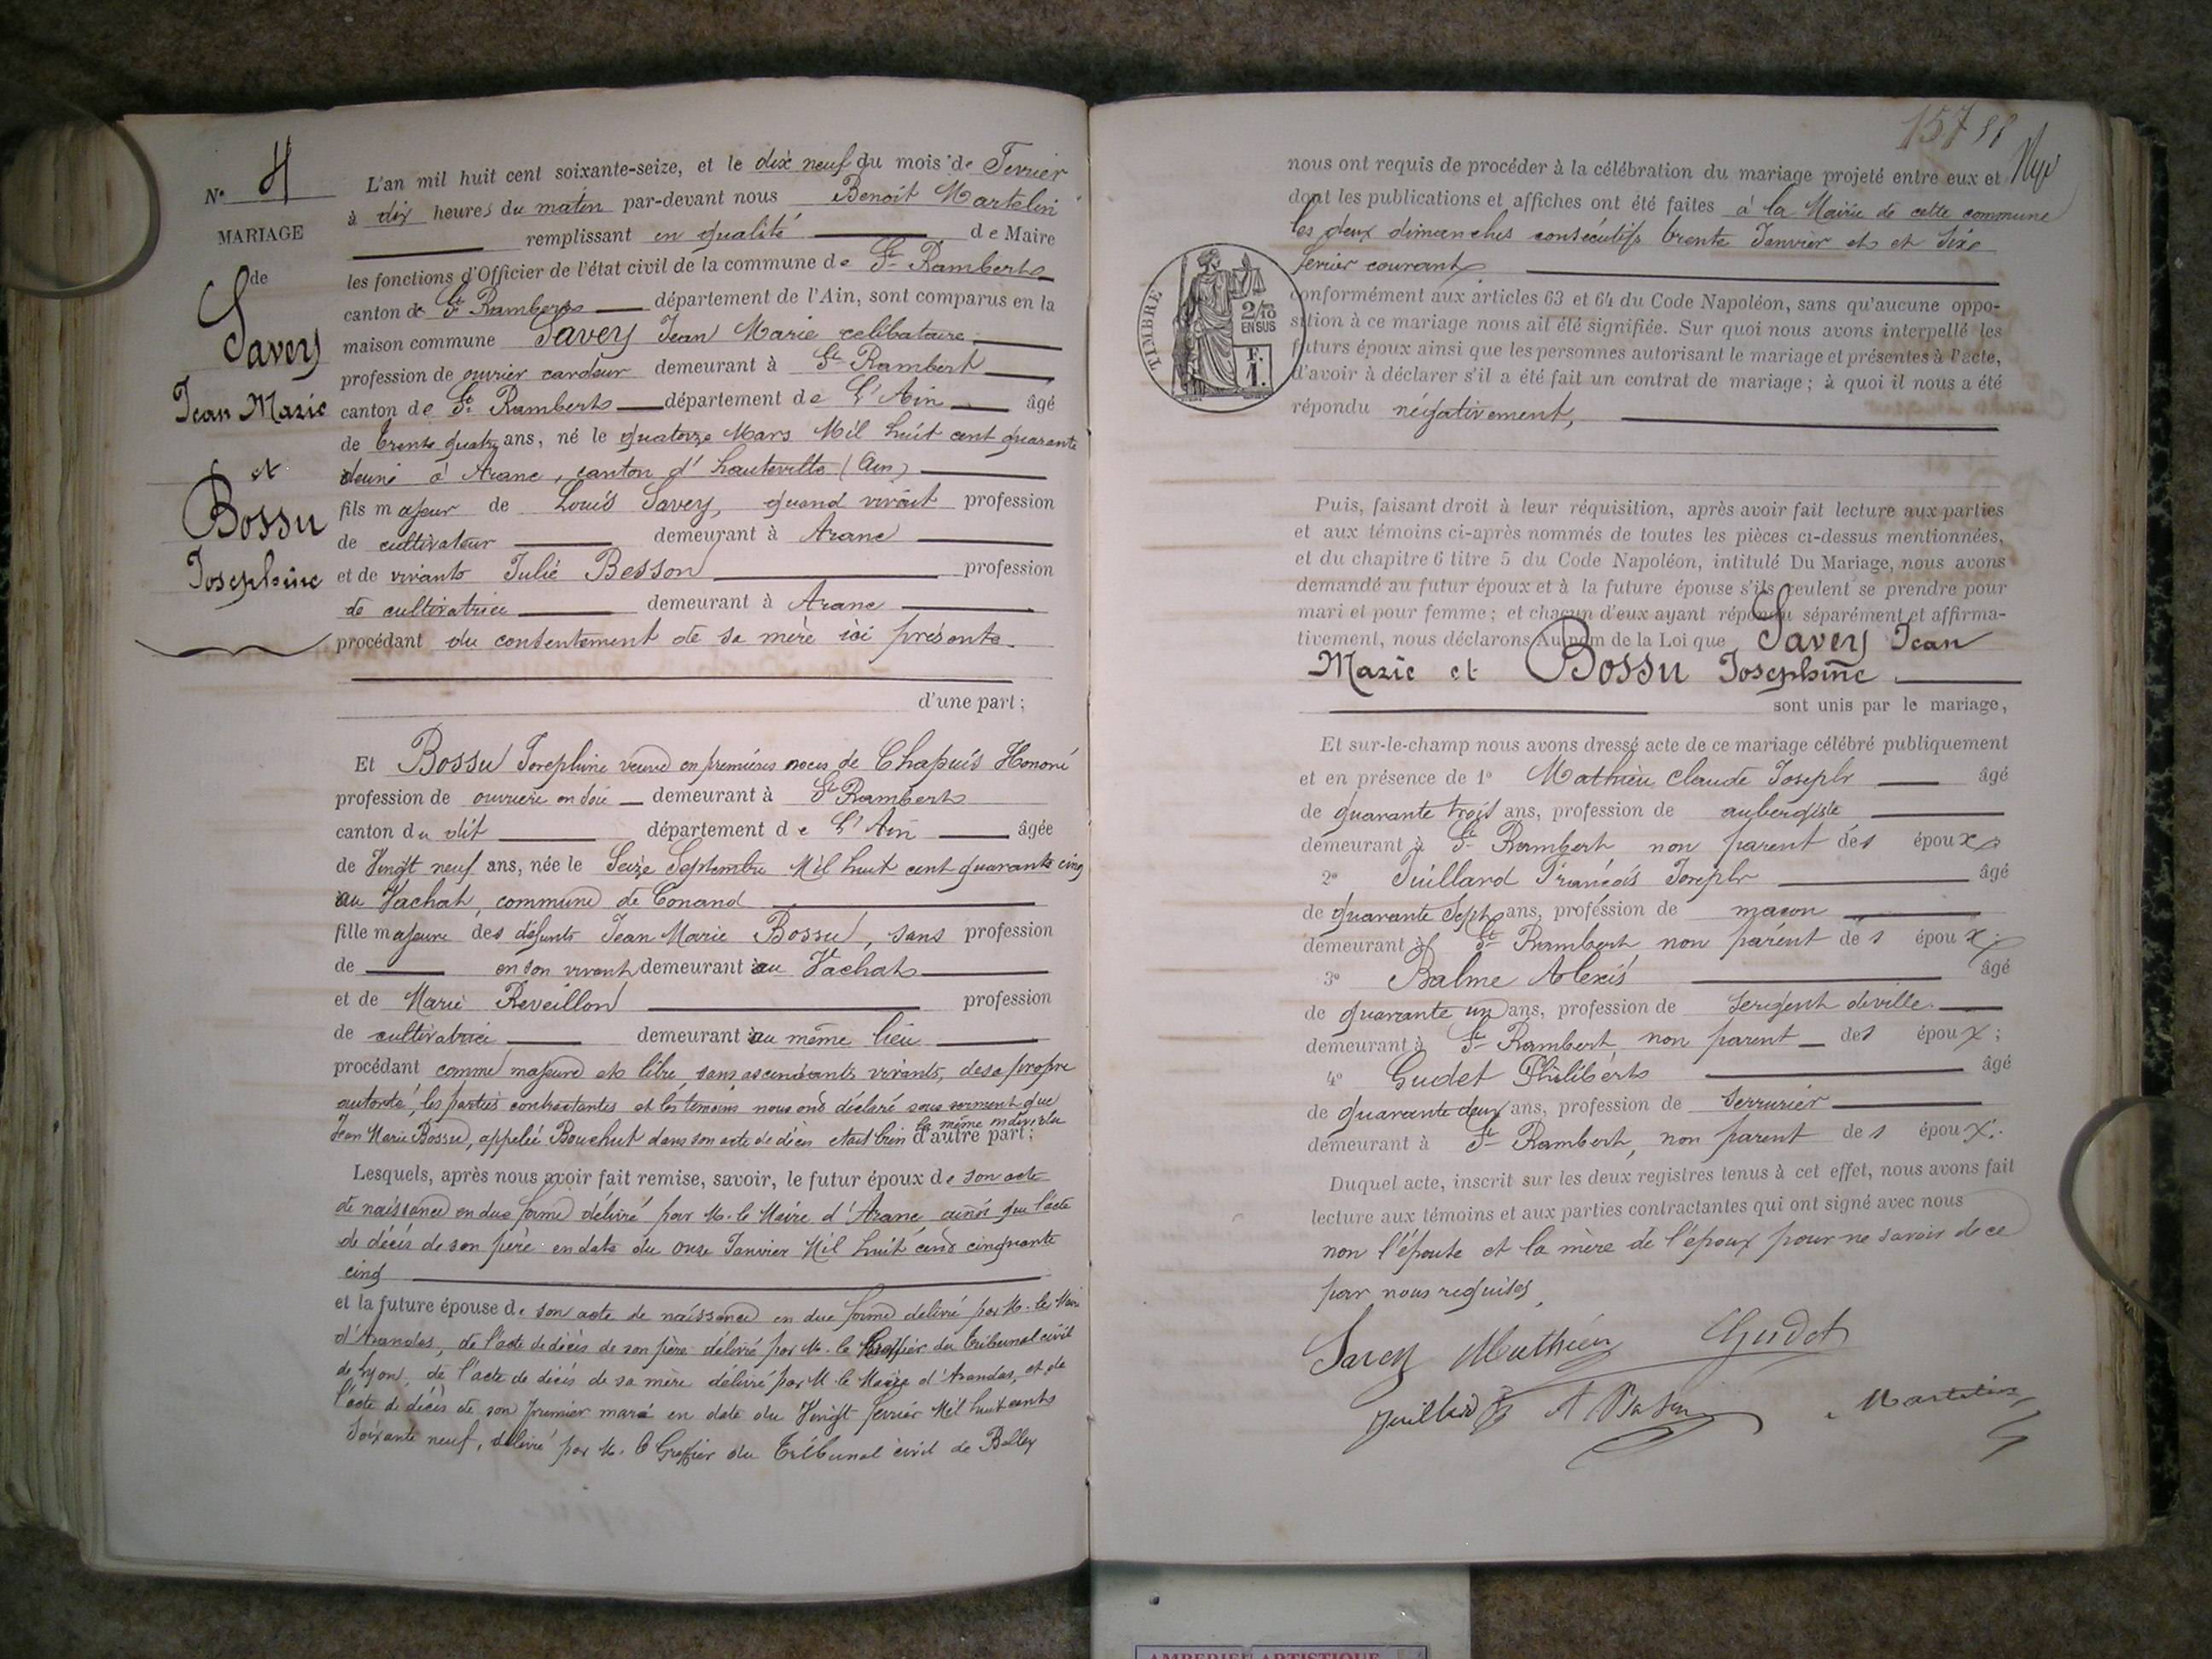 N° 4
MARIAGE
de
Savey
Jean Marie
et
Bossu
Josephine
L'an mil huit cent soixante-seize, et le dix neuf du mois de Fevrier
à dix heures du matin par-devant nous Benoit Martelin
remplissant en qualité de Maire
les fonctions d'Officier de l'état civil de la commune de St Rambert
canton de St Rambert département de l'Ain, sont comparus en la
maison commune Savey Jean Marie celibataire
profession de ouvrier cardeur demeurant à St Rambert
canton de St Rambert département de L'Ain âgé
de trente quatre ans, né le quatorze Mars Mil huit cent quarante
deux à Aranc, canton d'hauteville (Ain)
fils majeur de Louis Savey, quand vivait profession
de cultivateur demeurant à Aranc
et de vivante Julie Besson profession
de cultivatrice demeurant à Aranc
procédant du consentement de sa mère ici présente.
d'une part;
Et Bossu Josephine veuve en premières noces de Chapuis Honoré
profession de ouvriere en soie demeurant à St Rambert
canton du dit département de L'Ain âgée
de Vingt neuf ans, née le Seize Septembre Mil huit cent quarante cinq
au Vachat, commune de Conand
fille majeure des défunts Jean Marie Bossu, sans profession
de en son vivant demeurant au Vachat
et de Marie Reveillon profession
de cultivatrice demeurant au même lieu
procédant comme majeure et libre, sans ascendants vivants, de sa propre
autorité, les parties contractantes et les temoins nous ont déclaré sous serment que
Jean Marie Bossu, appelé Bouchut dans son acte de décès etait bien le même individu
d'autre part;
Lesquels, après nous avoir fait remise, savoir, le futur époux de son acte
de naissance en due forme délivré par M. le Maire d'Aranc ainsi que l'acte
de décès de son père en date du onze Janvier Mil huit cent cinquante
cinq
et la future épouse de son acte de naissance en due forme delivré par M. le Maire
d'Arandas, de l'acte de décès de son père délivré par M. le Greffier du tribunal civil
de Lyon, de l'acte de décès de sa mère délivré par M le Maire d'Arandas, et de
l'acte de décès de son premier mari en date du Vingt fevrier Mil huit cents
Soixante neuf, délivré par M. le Greffier du Tribunal civil de Belley
157
nous ont requis de procéder à la célébration du mariage projeté entre eux et
dont les publications et affiches ont été faites à la Mairie de cette commune
les deux dimanches consécutifs trente Janvier et et Six
fevrier courant
TIMBRE
2/10
EN SUS
F.
1.
conformément aux articles 63 et 64 du Code Napoléon, sans qu'aucune oppo-
sition à ce mariage nous ait été signifiée. Sur quoi nous avons interpellé les
futurs époux ainsi que les personnes autorisant le mariage et présentes à l'acte,
d'avoir à déclarer s'il a été fait un contrat de mariage; à quoi il nous a été
répondu négativement,
Puis, faisant droit à leur réquisition, après avoir fait lecture aux parties
et aux témoins ci-après nommés de toutes les pièces ci-dessus mentionnées,
et du chapitre 6 titre 5 du Code Napoléon, intitulé Du Mariage, nous avons
demandé au futur époux et à la future épouse s'ils veulent se prendre pour
mari et pour femme; et chacun d'eux ayant répondu séparément et affirma-
tivement, nous déclarons Au nom de la Loi que Savey Jean
Marie et Bossu Josephine
sont unis par le mariage,
Et sur-le-champ nous avons dressé acte de ce mariage célébré publiquement
et en présence de 1° Mathieu Claude Joseph âgé
de quarante trois ans, profession de aubergiste
demeurant à St Rambert non parent des époux
2° Juillard François Joseph âgé
de quarante Sept ans, profession de maçon
demeurant à St Rambert non parent des époux;
3° Balme Alexis âgé
de quarante un ans, profession de Sergent de ville.
demeurant à St Rambert, non parent des époux;
4° Gudet Philibert âgé
de quarante deux ans, profession de Serrurier
demeurant à St Rambert, non parent des époux;
Duquel acte, inscrit sur les deux registres tenus à cet effet, nous avons fait
lecture aux témoins et aux parties contractantes qui ont signé avec nous
non l'épouse et la mère de l'époux pour ne savoir de ce
par nous requises
Savey Mathieu Gudet
Juillard Martelin
AMBERIEU ARTISTIQUE